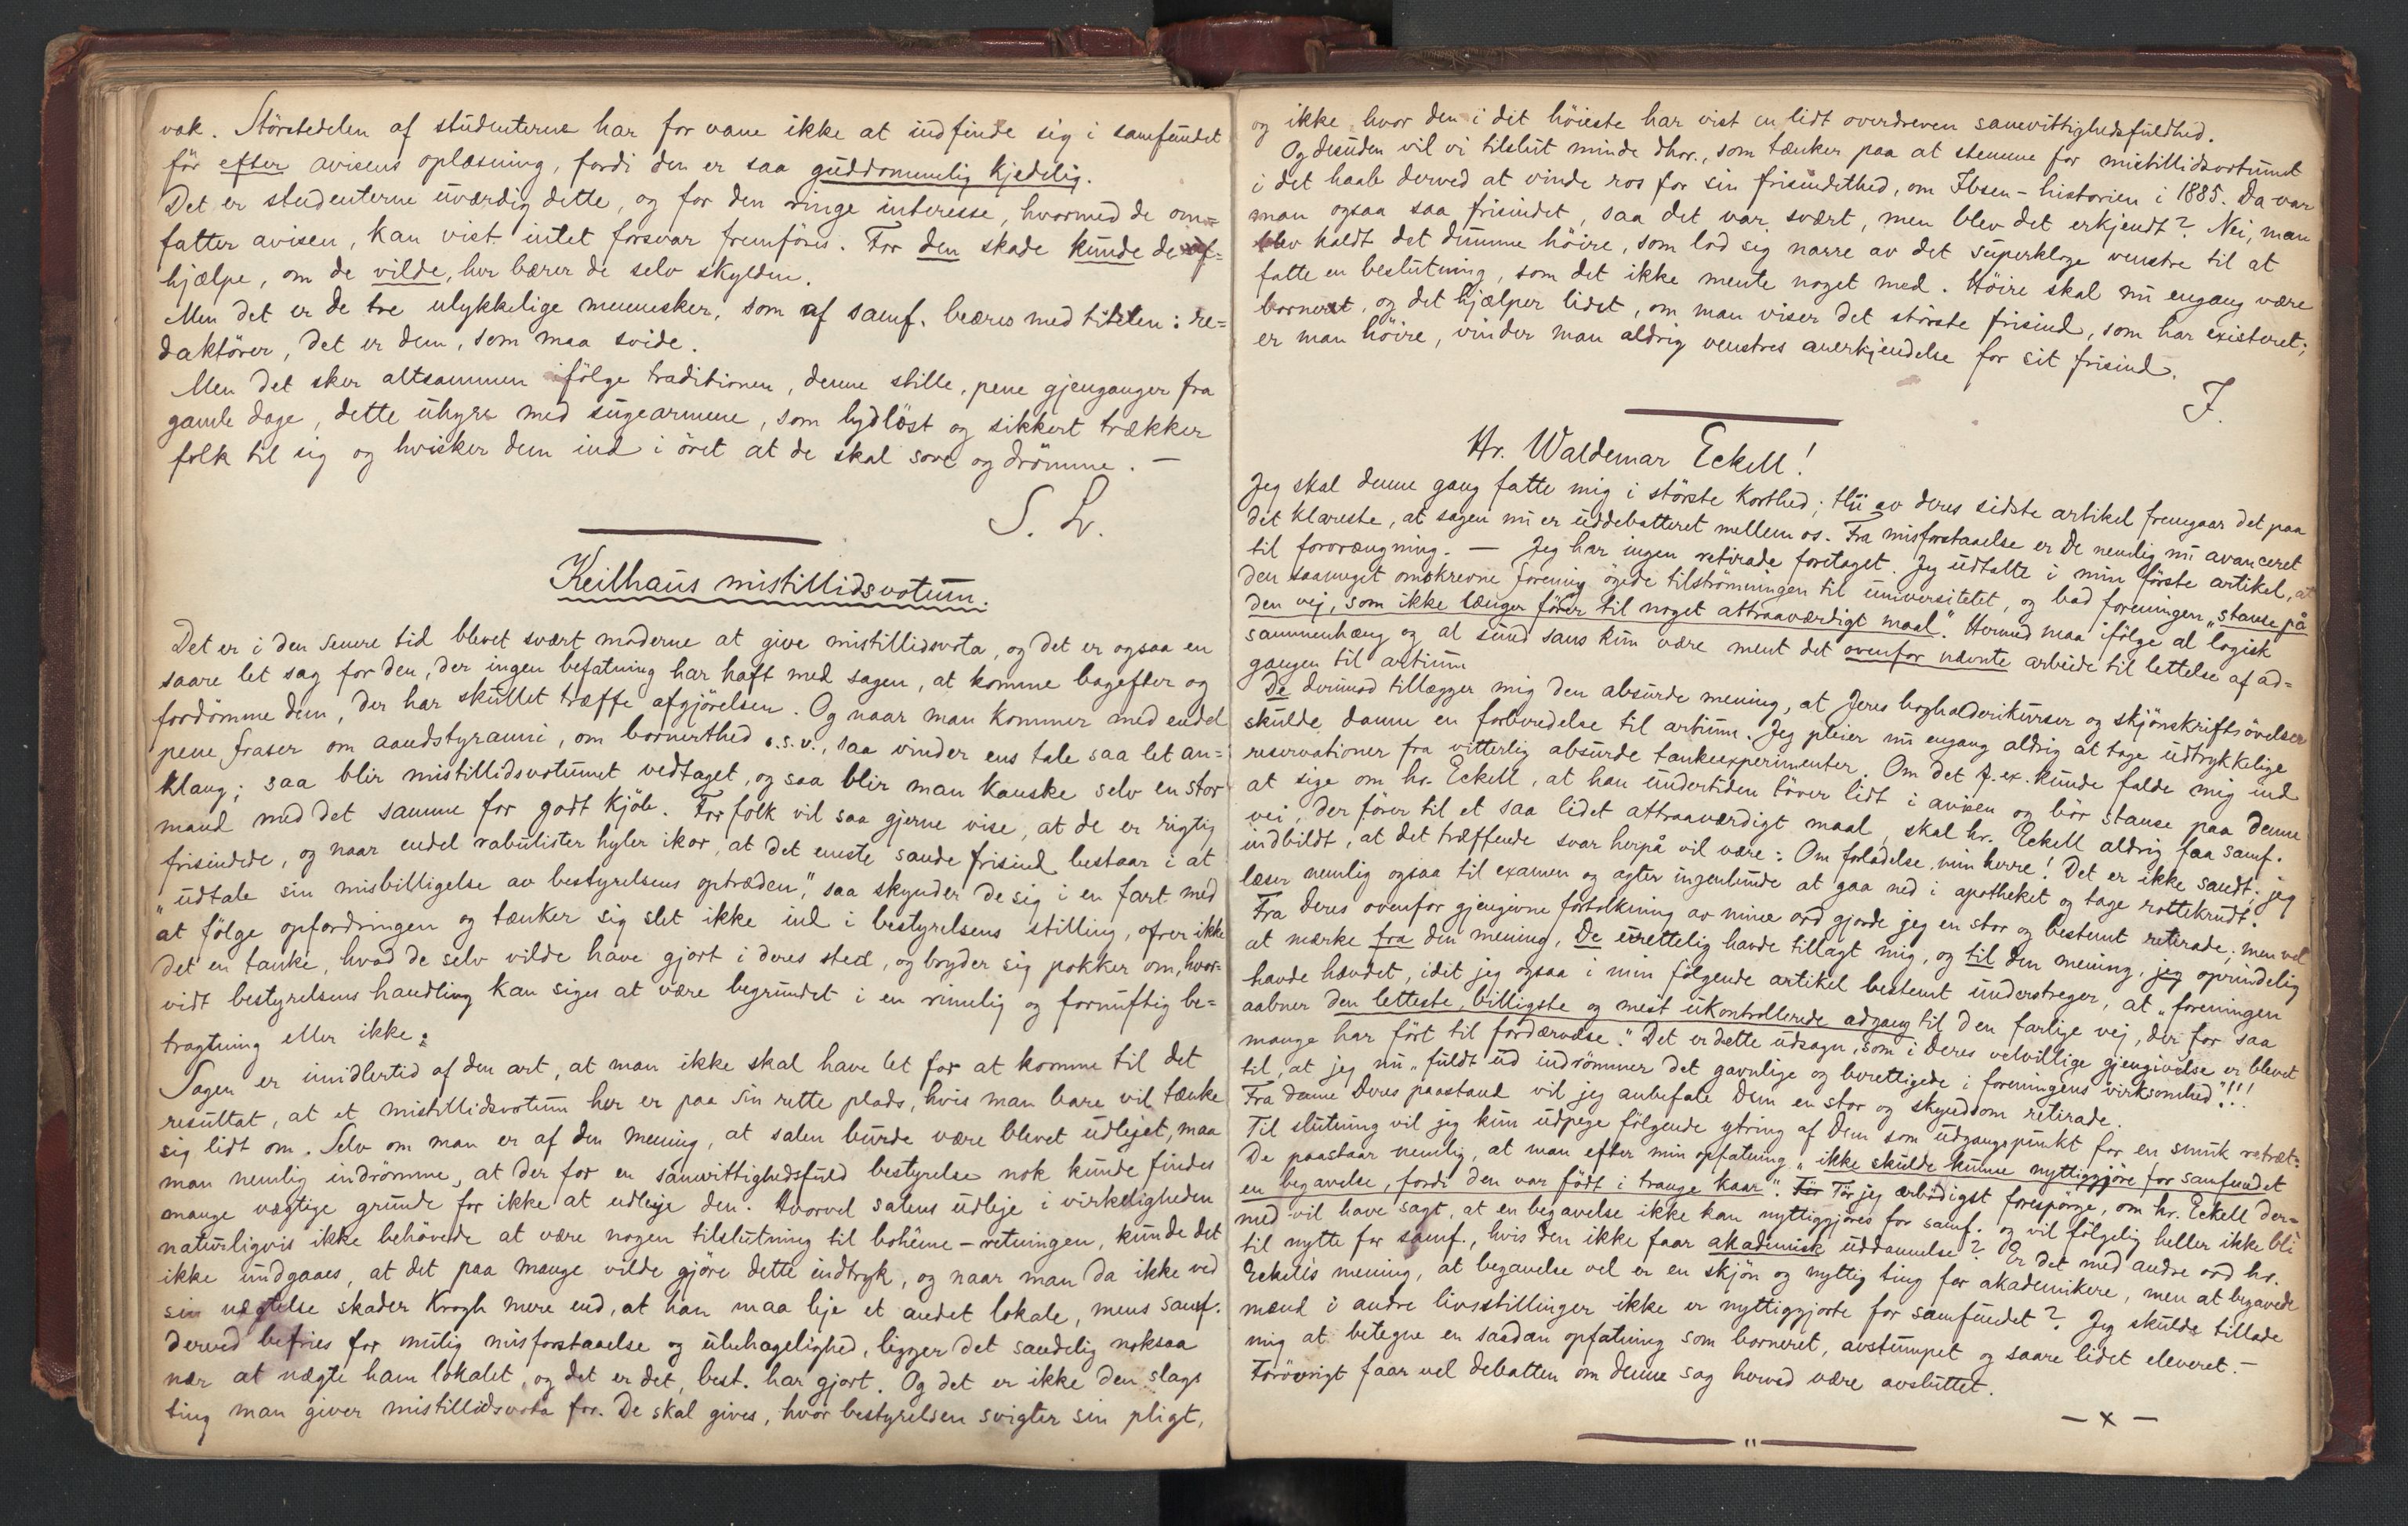 vak. Störstedelen af studenterne har for vane ikke at indfinde sig i samfundet
för efter avisens oplæsning, fordi den er saa guddommelig kjedelig.
Det er studenterne uværdig dette, og for den ringe interesse, hvormed de om=
fatter avisen, kan vist intet forsvar fremföres. For den skade kunde de af=
hjælpe, om de vilde, her bærer de selv skylden.
Men det er de tre ulykkelige mennesker, som af samf. beæres med titelen: re=
daktörer, det er dem, som maa svide.
Men det sker altsammen ifölge traditionen, denne stille, pene gjenganger fra
gamle dage, dette uhyre med sugearmene, som lydlöst og sikkert trækker
folk til sig og hvisker dem ind i öret at de skal sove og drömme. —
S. L.
Keilhaus mistillidsvotum.
Det er i den senere tid blevet svært moderne at give mistillidsvota, og det er ogsaa en
saare let sag for den, der ingen befatning har haft med sagen, at komme bagefter og
fordömme dem, der har skullet træffe afgjörelsen. Og naar man kommer med endel
pene fraser om aandstyranni, om bornerthed o.s.v., saa vinder ens tale saa let an=
klang; saa blir mistillidsvotumet vedtaget, og saa blir man kanske selv en stor
mand med det samme for godt kjöb. For folk vil saa gjerne vise, at de er rigtig
frisindede, og naar endel rabulister hyler i kor, at det eneste sande frisind bestaar i at
"udtale sin misbilligelse av bestyrelsens optræden", saa skynder de sig i en fart med
at fölge opfordringen og tænker sig slet ikke ind i bestyrelsens stilling, ofrer ikke
det en tanke, hvad de selv vilde have gjort i deres sted, og bryder sig pokker om, hvor=
vidt bestyrelsens handling kan siges at være begrundet i en rimelig og fornuftig be=
tragtning eller ikke.
Sagen er imidlertid af den art, at man ikke skal have let for at komme til det
resultat, at et mistillidsvotum her er paa sin rette plads, hvis man bare vil tænke
sig lidt om. Selv om man er af den mening, at salen burde være blevet udlejet, maa
man nemlig indrömme, at der for en samvittighedsfuld bestyrelse nok kunde findes
mange vægtige grunde for ikke at udleje den. Hvorvel salens udleje i virkeligheden
naturligvis ikke behövede at være nogen tilslutning til bohême-retningen, kunde det
ikke undgaaes, at det paa mange vilde gjöre dette indtryk, og naar man da ikke ved
sin nægtelse skader Krogh mere end, at han maa leje et andet lokale, mens samf.
derved befries for mulig misforstaaelse og ubehagelighed, ligger det sandelig noksaa
nær at nægte ham lokalet, og det er det, best. har gjort. Og det er ikke den slags
ting man giver mistillidsvota for. De skal gives, hvor bestyrelsen svigter sin pligt,
og ikke hvor den i det höieste har vist en lidt overdreven samvittighedsfuldhed.
Og desuden vil vi tilslut minde dhrr., som tænker paa at stemme for mistillidsvotumet
i det haab derved at vinde ros for sin frisindethed, om Ibsen-historien i 1885. Da var
man ogsaa saa frisindet, saa det var svært, men blev det erkjendt? Nei, man
blev kaldt det dumme höire, som lod sig narre av det superkloge venstre til at
fatte en beslutning, som det ikke mente noget med. Höire skal nu engang være
bornert, og det hjælper lidet, om man viser det störste frisind, som har existeret;
er man höire, vinder man aldrig venstres anerkjendelse for sit frisind.
J.
Hr. Waldemar Eckell!
Jeg skal denne gang fatte mig i störste korthed; thi av deres sidste artikel fremgaar det paa
det klareste, at sagen nu er uddebatteret mellem os. Fra misforstaaelse er De nemlig nu avanceret
til forvrængning. — Jeg har ingen retirade foretaget. Jeg udtalte i min förste artikel, at
den saameget omskrevne forening ögede tilströmningen til universitetet, og bad foreningen "stanse på
den vej, som ikke længer förer til noget attraaværdigt maal". Hermed maa ifölge al logisk
sammenhæng og al sund sans kun være ment det ovenfor nævnte arbeide til lettelse af ad=
gangen til artium
De derimod tillægger mig den absurde mening, at Jeres bogholderikurser og skjönskriftsövelser
skulde danne en forberedelse til artium. Jeg pleier nu engang aldrig at tage udtrykkelige
reservationer fra vitterlig absurde tankeexperimenter. Om det f. ex. kunde falde mig ind
at sige om hr. Eckell, at han undertiden töver lidt i avisen og bör stanse paa denne
vei, der förer til et saa lidet attraaværdigt maal, skal hr. Eckell aldrig faa samf.
indbildt, at det træffende svar herpå vil være: Om forladelse, min herre! Det er ikke sandt; jeg
læser nemlig ogsaa til examen og agter ingenlunde at gaa ned i apotheket og tage rottekrudt.
Fra deres ovenfor gjengivne fortolkning av mine ord gjorde jeg en stor og bestemt retirade; men vel
at mærke fra den mening, De urettelig havde tillagt mig, og til den mening, jeg oprindelig
havde hævdet, idet jeg ogsaa i min fölgende artikel bestemt understreger, at "foreningen
aabner den letteste, billigste og mest ukontrollerede adgang til den farlige vej, der for saa
mange har fört til fordærvelse." Det er dette udsagn, som i Deres velvillige gjengivelse er blevet
til, at jeg nu "fuldt ud indrömmer det gavnlige og berettigede i foreningens virksomhed"!!!
Fra denne Deres paastand vil jeg anbefale Dem en stor og skyndsom retirade.
Til slutning vil jeg kun udpege fölgende ytring af Dem som udgangspunkt for en smuk retræt:
De paastaar nemlig, at man efter min opfatning "ikke skulde kunne nyttiggjöre for samfundet
en begavelse, fordi den var födt i trange kaar". Tör jeg ærbödigst forespörge, om hr. Eckell der=
med vil have sagt, at en begavelse ikke kan nyttiggjöres for samf. og vil fölgelig heller ikke bli
til nytte for samf., hvis den ikke faar akademisk uddannelse? Er det med andre ord hr.
Eckells mening, at begavelse vel er en skjön og nyttig ting for akademikere, men at begavede
mænd i andre livsstillinger ikke er nyttiggjorte for samfundet? Jeg skulde tillade
mig at betegne en saadan opfatning som borneret, avstumpet og saare lidet eleveret. —
Forövrigt faar vel debatten om denne sag herved være avsluttet.
— x —